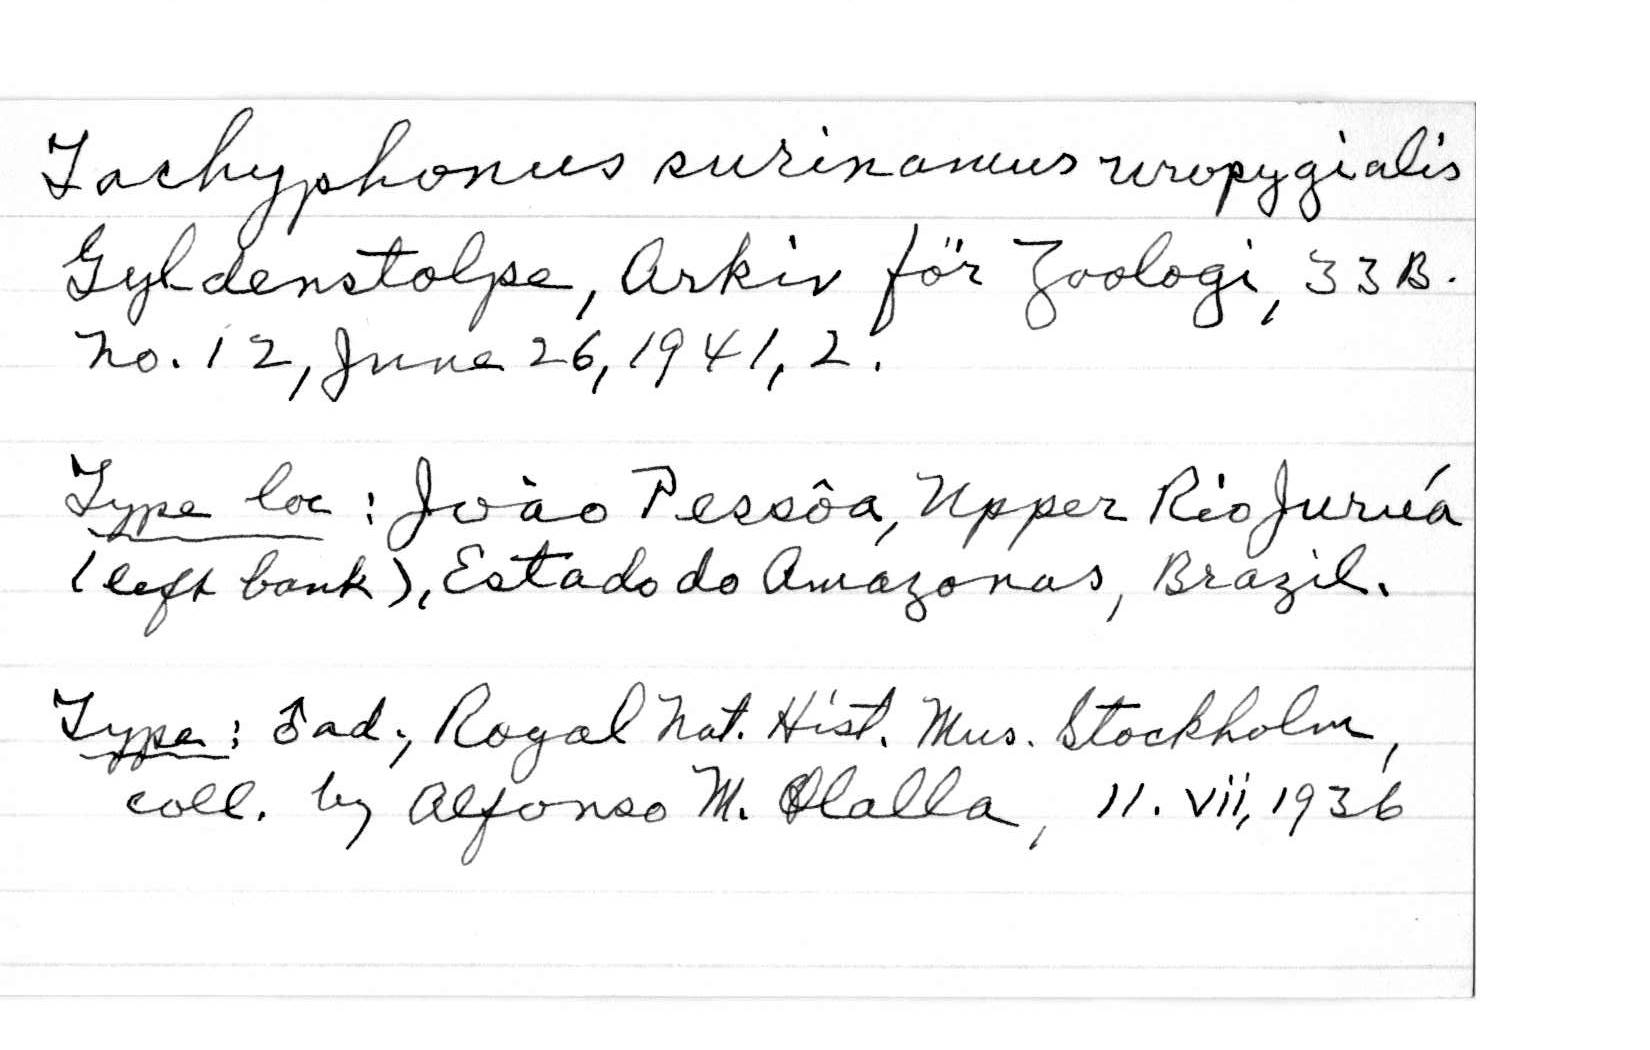 Tachyphonus surinamus uropygialis
Gyldenstolpe, Arkiv för Zoologi, 33B.
No. 12, June 26, 1941, 2.
Type loc: João Pessôa, Upper Rio Juruá
(left bank), Estado do Amazonas, Brazil.
Type: ♂ ad., Royal Nat. Hist. Mus. Stockholm,
coll. by Alfonso M. Olalla, 11. vii, 1936